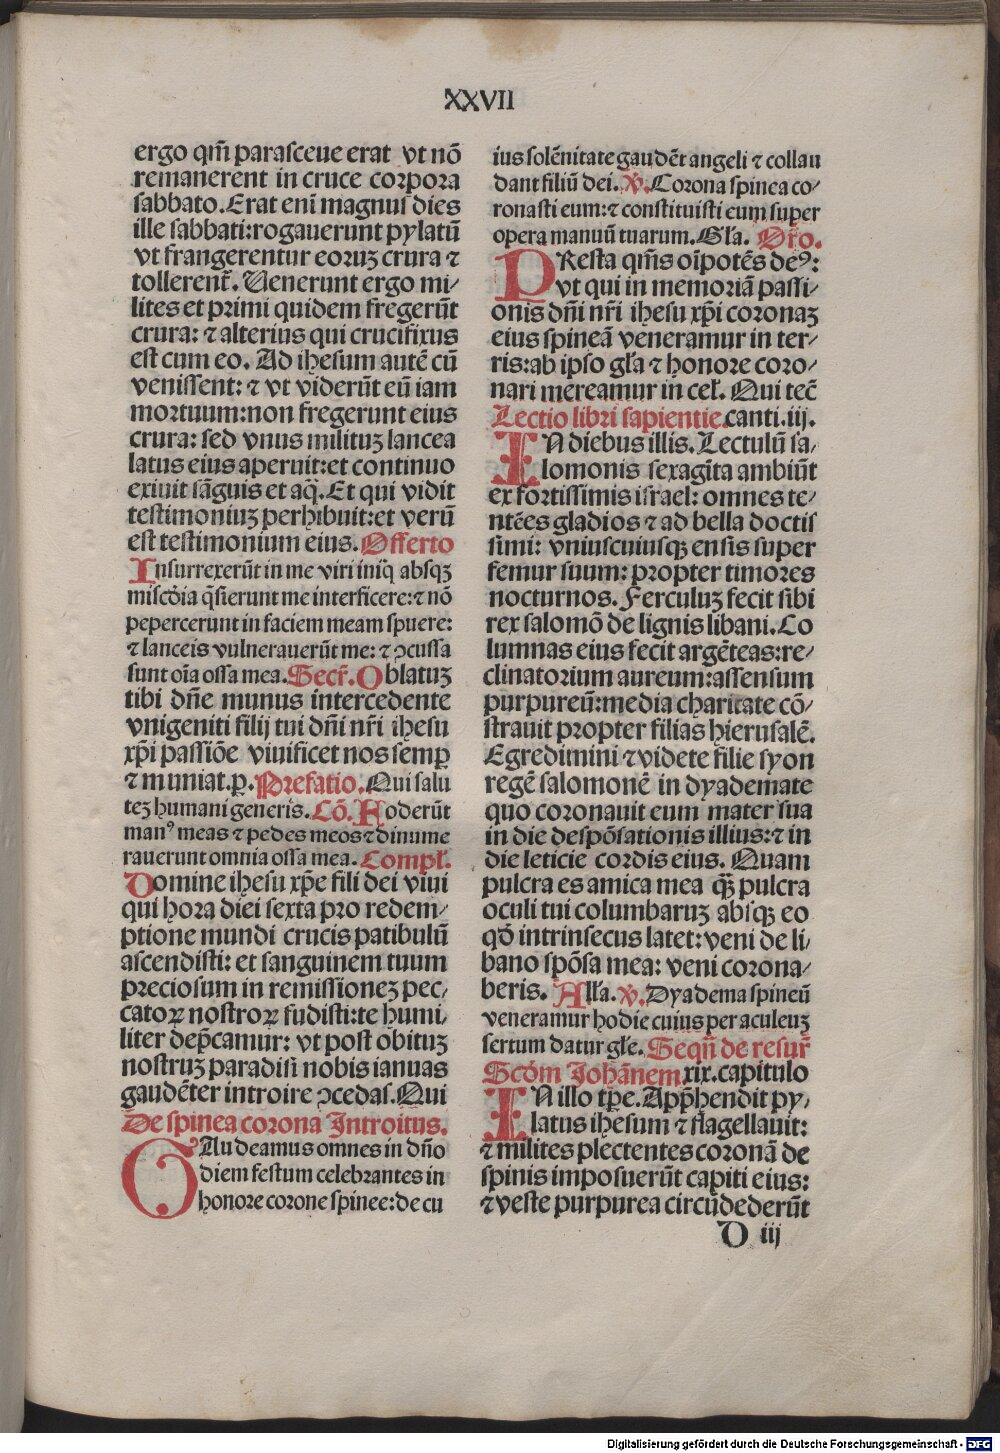 XXVII
ergo qm̄ parasceue erat vt nō
remanerent in cruce corpora
sabbato. Erat eni magnus dies
ille sabbati: rogauerunt pylatū
vt frangerentur eoruꝫ crura ⁊
tollerent̄. Uenerunt ergo mi⸗
lites et primi quidem fregerūt
crura: ⁊ alterius qui crucifixus
est cum eo. Ad ihesum autē cū
venissent: ⁊ vt viderūt eū iam
mortuum: non fregerunt eius
crura: sed vnus milituꝫ lancea
latus eius aperuit: et continuo
exiuit sāguis et aq̄. Et qui vidit
testimoniuꝫ perhibuit: et verū
est testimonium eius. Offerto
Insurrexerūt in me viri iniq̄ absqꝫ
miscōia q̄sierunt me interficere: ⁊ nō
pepercerunt in faciem meam spuere:
⁊ lanceis vulnerauerūt me: ⁊ ꝯcussa
sunt oīa ossa mea. Secr̄. Oblatuꝫ
tibi dn̄e munus intercedente
vnigeniti filij tui dn̄i nr̄i ihesu
xp̄i passiōe viuificet nos semꝑ
⁊ muniat. ꝑ. Prefatio. Qui salu
teꝫ humani generis. Cō. Foderūt
manꝰ meas ⁊ pedes meos ⁊ dinume
rauerunt omnia ossa mea. Compl̄.
Domine ihesu xp̄e fili dei viui
qui hora diei sexta pro redem⸗
ptione mundi crucis patibulū
ascendisti: et sanguinem tuum
preciosum in remissioneꝫ pec⸗
catoꝝ nostroꝝ fudisti: te humi⸗
liter dep̄camur: vt post obituꝫ
nostruꝫ paradisi nobis ianuas
gaudēter introire ꝯcedas. Qui
De spinea corona Introitus.
GAudeamus omnes in dn̄o
diem festum celebrantes in
honore corone spinee: de cu
ius solēnitate gaudēt angeli ⁊ collau
dant filiū dei. v̄. Corona spinea co⸗
ronasti eum: ⁊ constituisti eum super
opera manuū tuarum. Gl̄a. Or̄o.
PResta qm̄s oīpotēs deꝰ:
vt qui in memoriā passi⸗
onis dn̄i nr̄i ihesu xp̄i coronaꝫ
eius spineā veneramur in ter⸗
ris: ab ipso gl̄a ⁊ honore coro⸗
nari mereamur in cel̄. Qui tec̄
Lectio libri sapientie. canti. iij.
IN diebus illis. Lectulū sa⸗
lomonis sexagīta ambiūt
ex fortissimis israel: omnes te⸗
ntēes gladios ⁊ ad bella doctis
simi: vniuscuiusqꝫ ensis super
femur suum: propter timores
nocturnos. Ferculuꝫ fecit sibi
rex salomō de lignis libani. Co
lumnas eius fecit argēteas: re⸗
clinatorium aureum: assensum
purpureū: media charitate cō⸗
strauit propter filias hierusalē.
Egredimini ⁊ videte filie syon
regē salomonē in dyademate
quo coronauit eum mater sua
in die despōsationis illius: ⁊ in
die leticie cordis eius. Quam
pulcra es amica mea qꝫ̄ pulcra
oculi tui columbaruꝫ absqꝫ eo
qō intrinsecus latet: veni de li⸗
bano spōsa mea: veni corona⸗
beris. All̄a. v̄. Dyadema spineū
veneramur hodie cuius per aculeuꝫ
sertum datur gl̄e. Sequn̄ de resur̄
Scd̄m Johānem xix. capitulo
IN illo tp̄e. App̄hendit py⸗
latus ihesum ⁊ flagellauit:
⁊ milites plectentes coronā de
spinis imposuerūt capiti eius:
⁊ veste purpurea circūdederūt
D iij
Digitalisierung gefördert durch die Deutsche Forschungsgemeinschaft - DFG